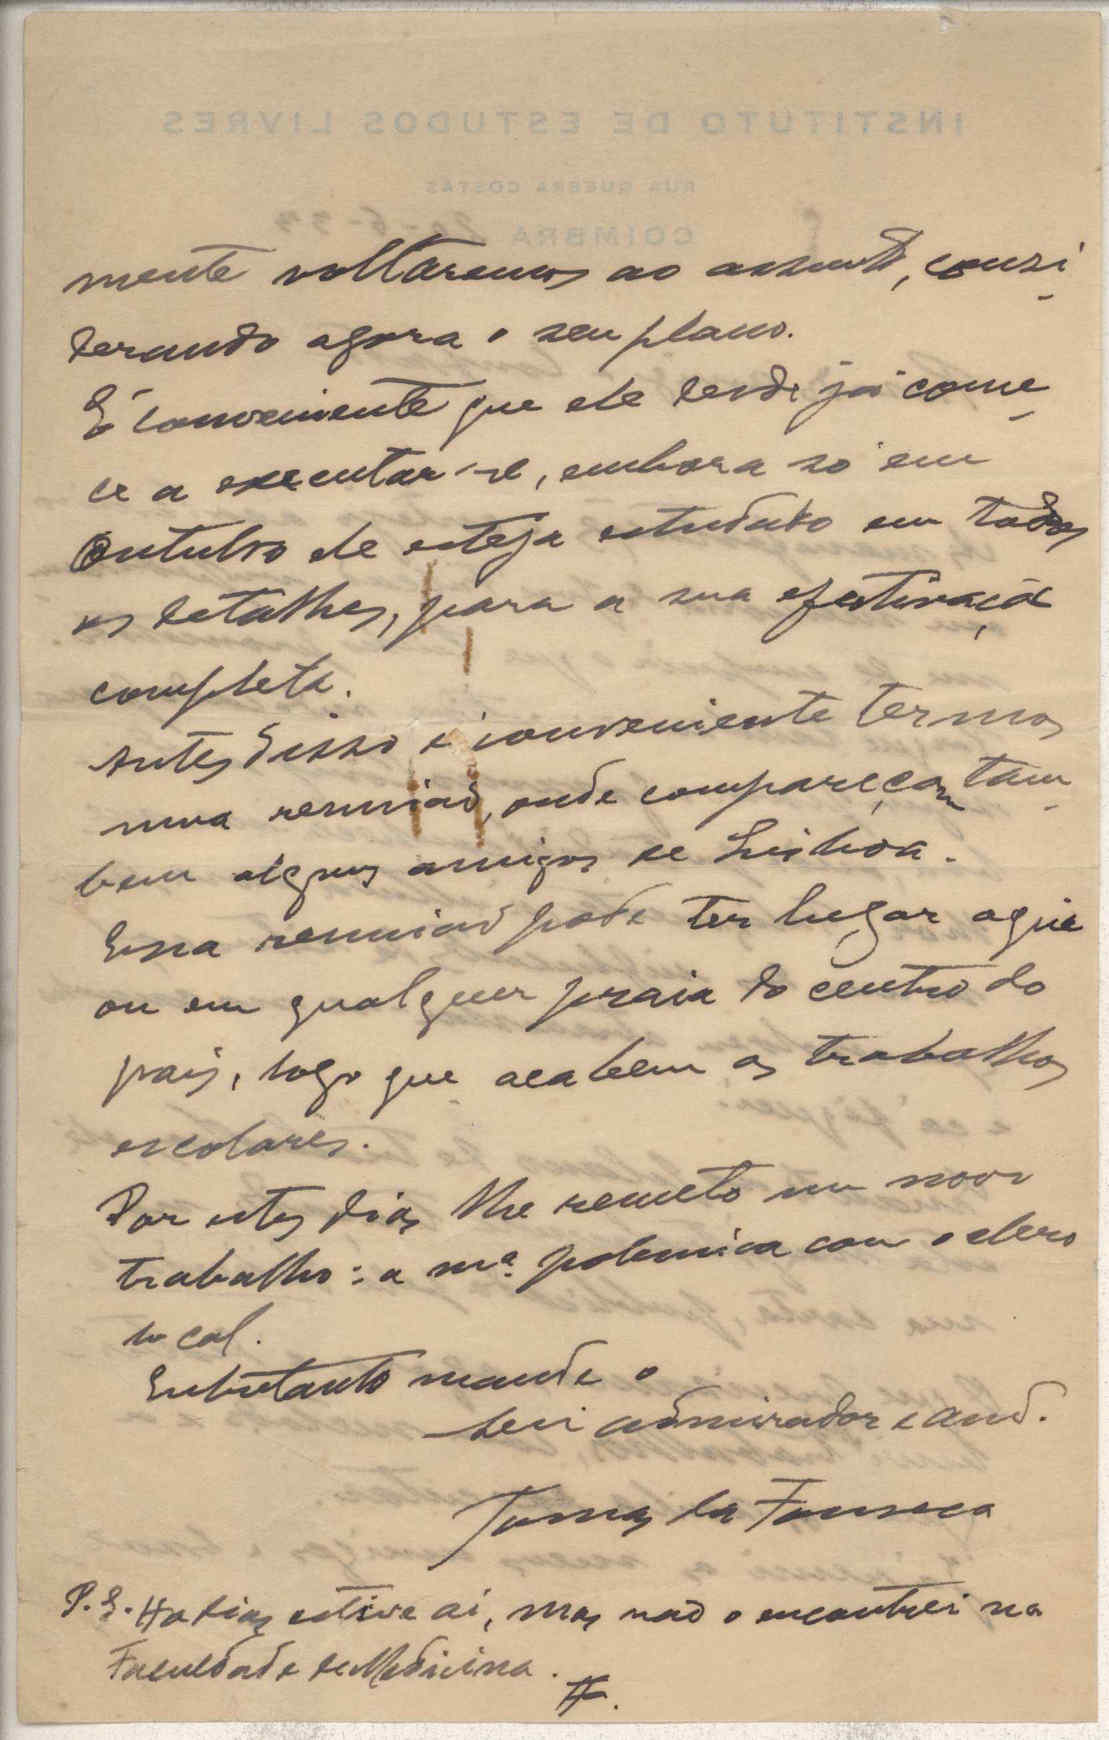 INSTITUTO DE ESTUDOS LIVRES
RUA QUEBRA COSTAS
COIMBRA 20-6-33
mente voltaremos ao assunto, consi-
derando agora o seu plano.
É conveniente que ele desde já come-
ce a executar-se, embora só em
Outubro ele esteja estudado em todos
os detalhes, para a sua efectivação
completa.
Antes disso é conveniente termos
uma reunião, onde compareçam tam-
bem alguns amigos de Lisboa.
Essa reunião pode ter lugar aqui
ou em qualquer praia do centro do
pais, logo que acabem os trabalhos
escolares.
Por estes dias lhe remeto um novo
trabalho: a mª polemica com o clero
local.
Entretanto mande o
seu admirador e amº.
Tomas da Fonseca
P.S. Ha dias estive aí, mas não o encontrei na
Faculdade de Medicina.
TF.